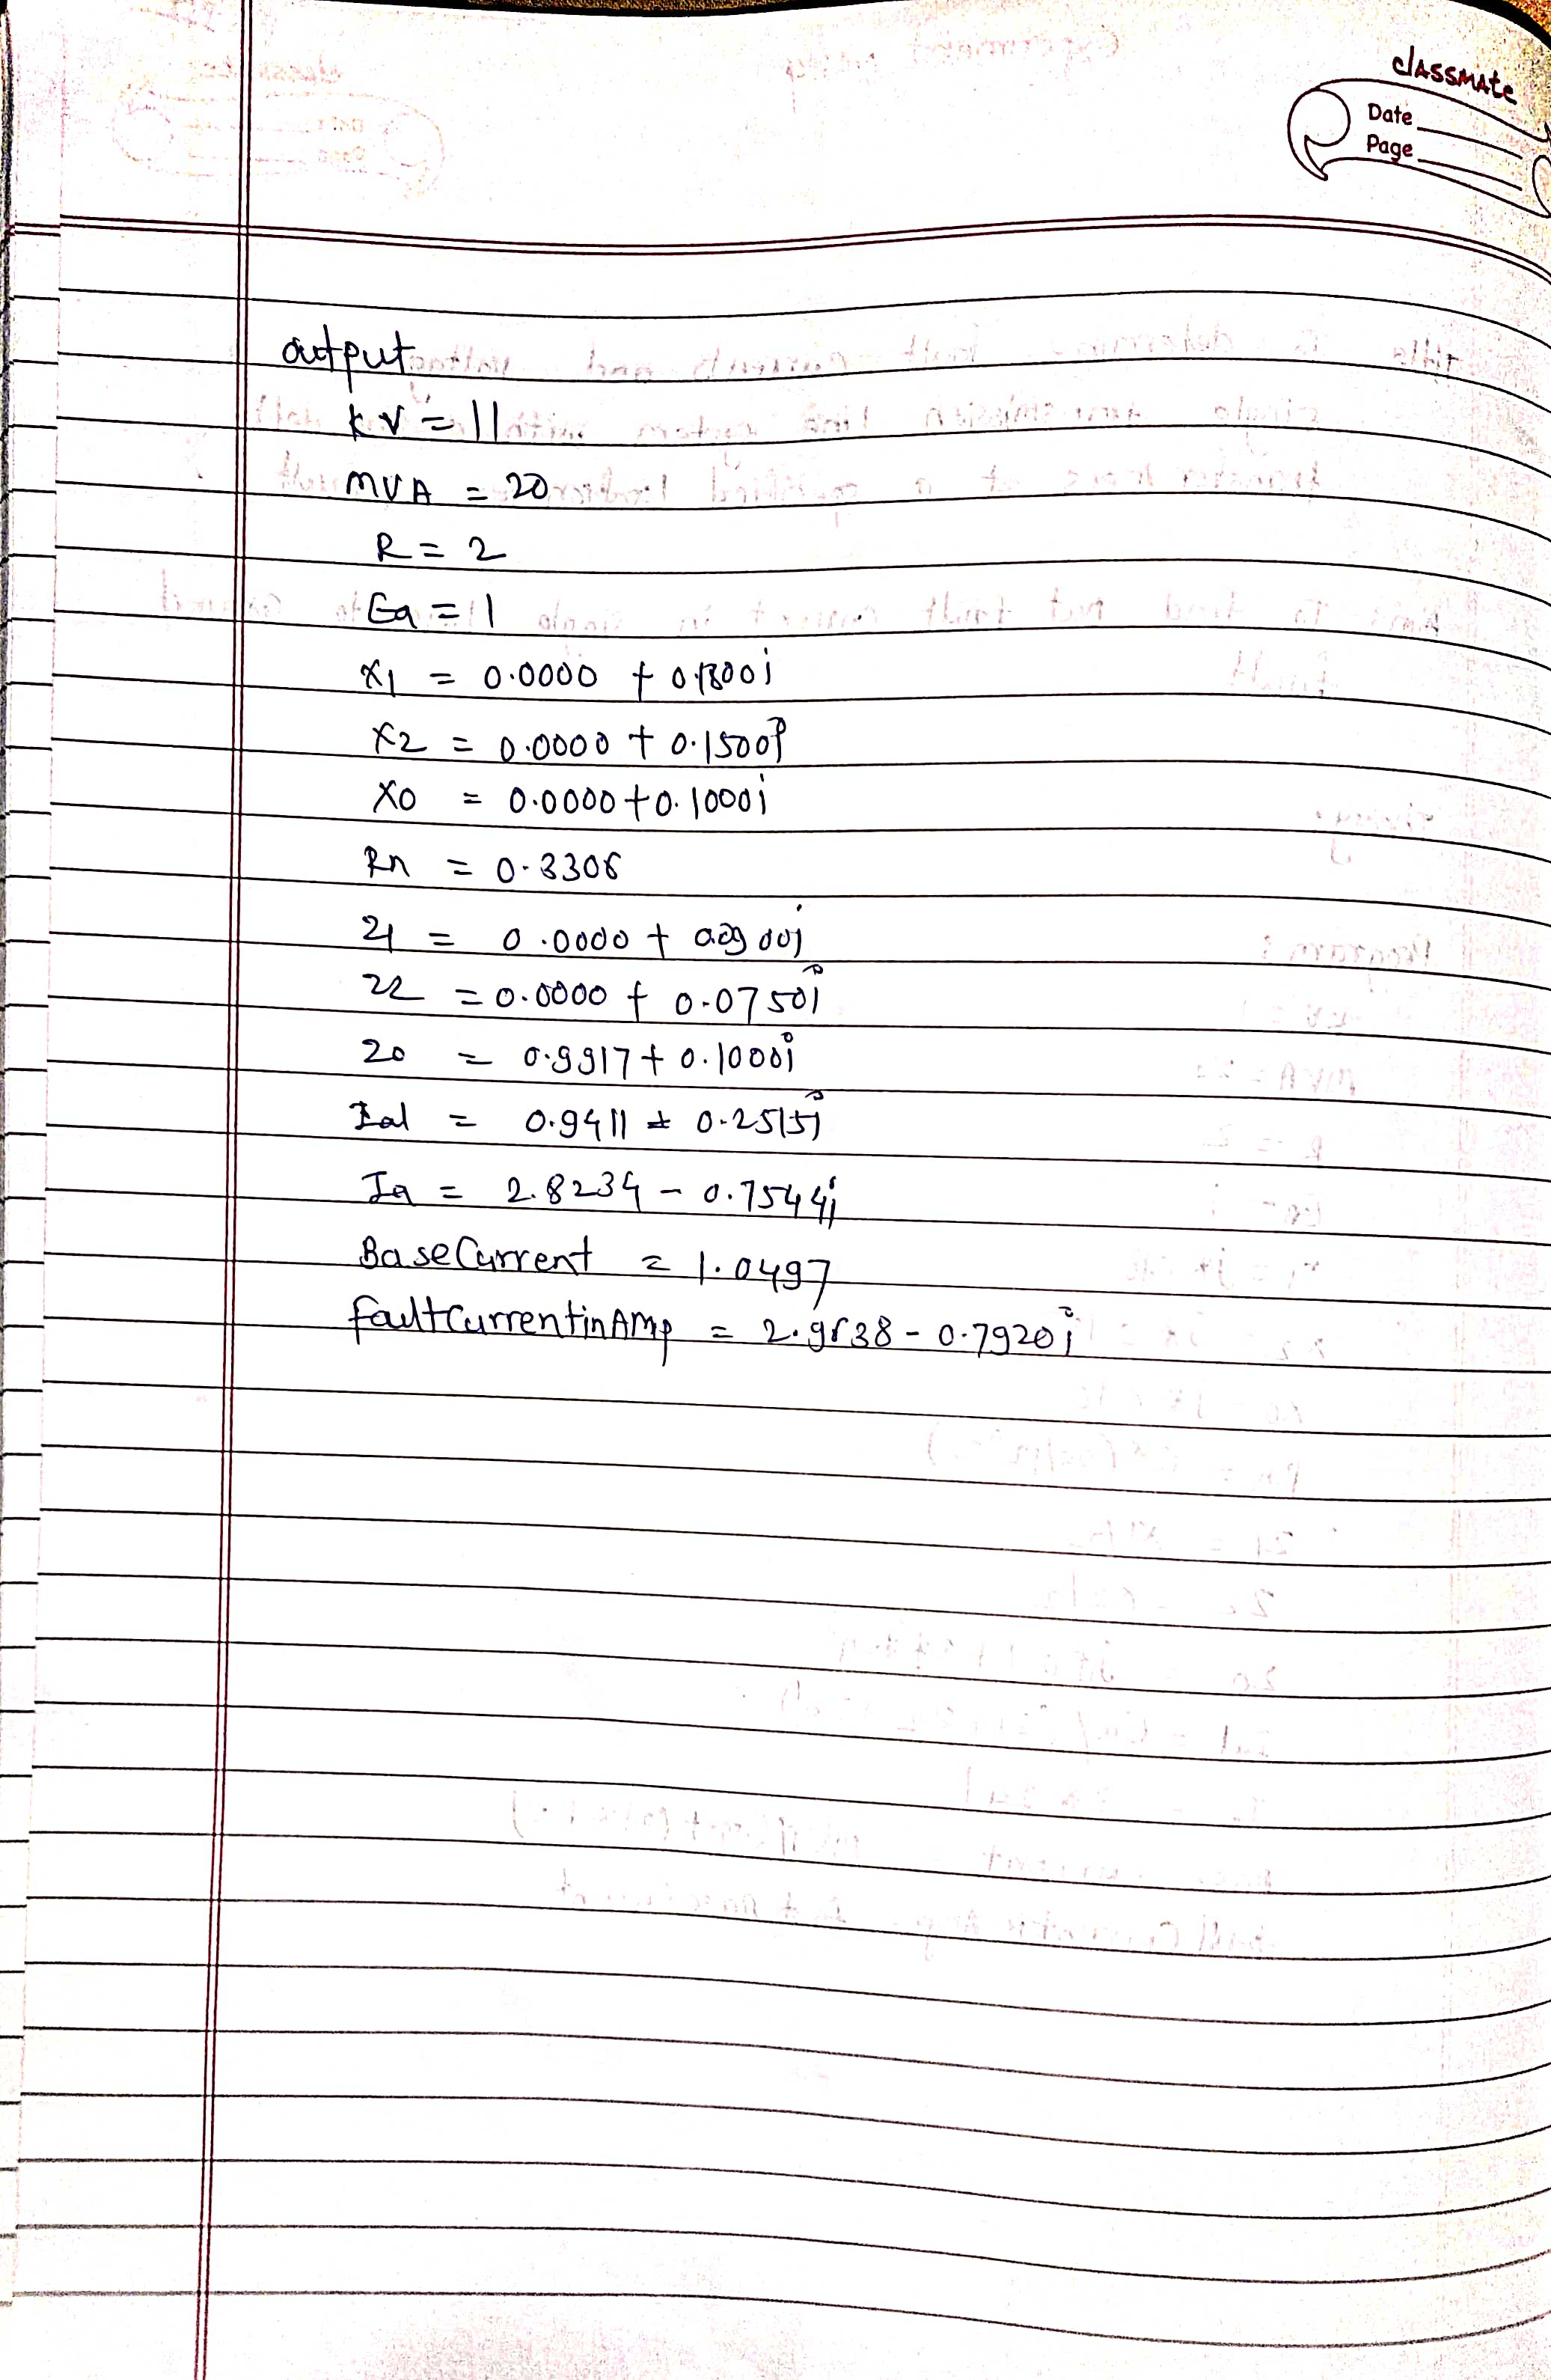 classmate
Date
Page
output
kV = 11
MVA = 20
R = 2
Ea = 1
X1 = 0.0000 + 0.1800i
X2 = 0.0000 + 0.1500i
X0 = 0.0000 + 0.1000i
Rn = 0.3306
Z1 = 0.0000 +
Z2 = 0.0000 + 0.0750i
Z0 = 0.9917 + 0.1000i
Ia1 = 0.9411 ± 0.2515i
Ia = 2.8234 - 0.7544i
BaseCurrent = 1.0497
faultCurrentinAmp = 2.9638 - 0.7920i